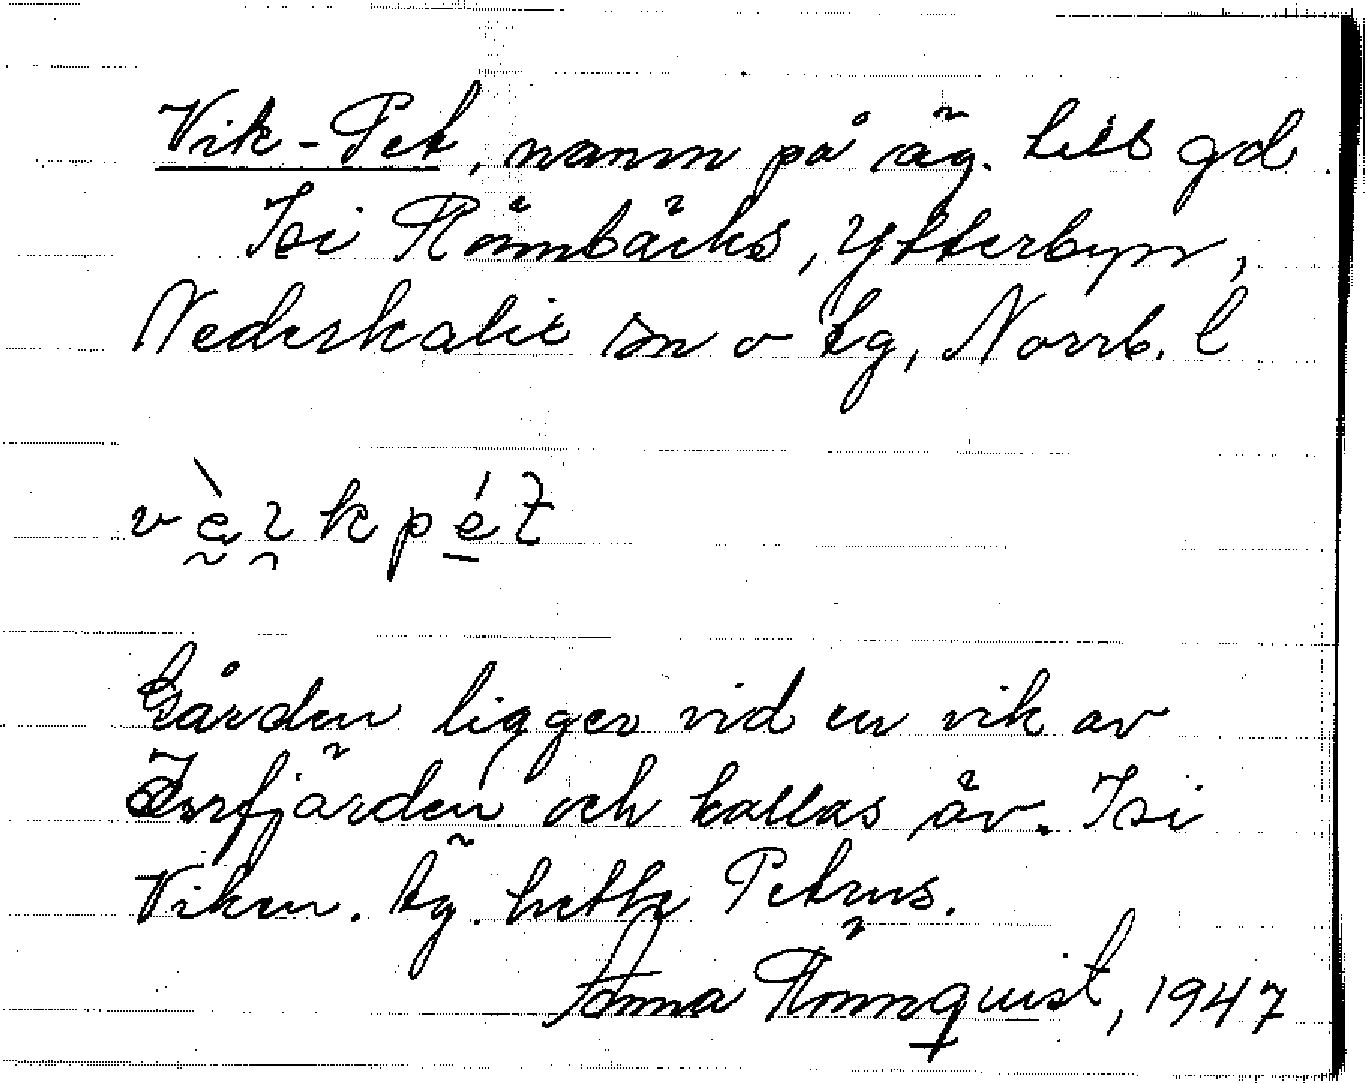 Vik-Pet, namn på äg. till gd
Isi Rönnbäcks, Ytterbyn,
Nederkalix sn o tg, Norrb. l
Gården ligger vid en vik av
fjärden och kallas äv. Isi
Viken. Äg. hette Petrus.
Anna Rönnquist, 1947